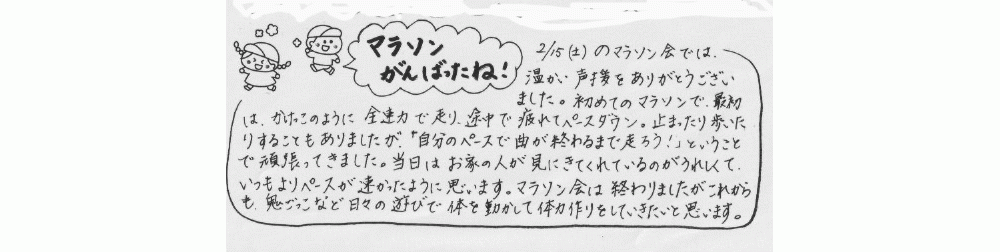 マラソン
がんばったね!
2/15(土)のマラソン会では、
温かい声援をありがとうござい
ました。初めてのマラソンで、最初
は、かけっこのように全速力で走り、途中で疲れてペースダウン。止まったり歩いた
りすることもありましたが、「自分のペースで曲が終わるまで走ろう!」ということ
で頑張ってきました。当日はお家の人が見にきてくれているのがうれしくて、
いつもよりペースが速かったように思います。マラソン会は終わりましたがこれから
も、鬼ごっこなど日々の遊びで体を動かして体力作りをしていきたいと思います。